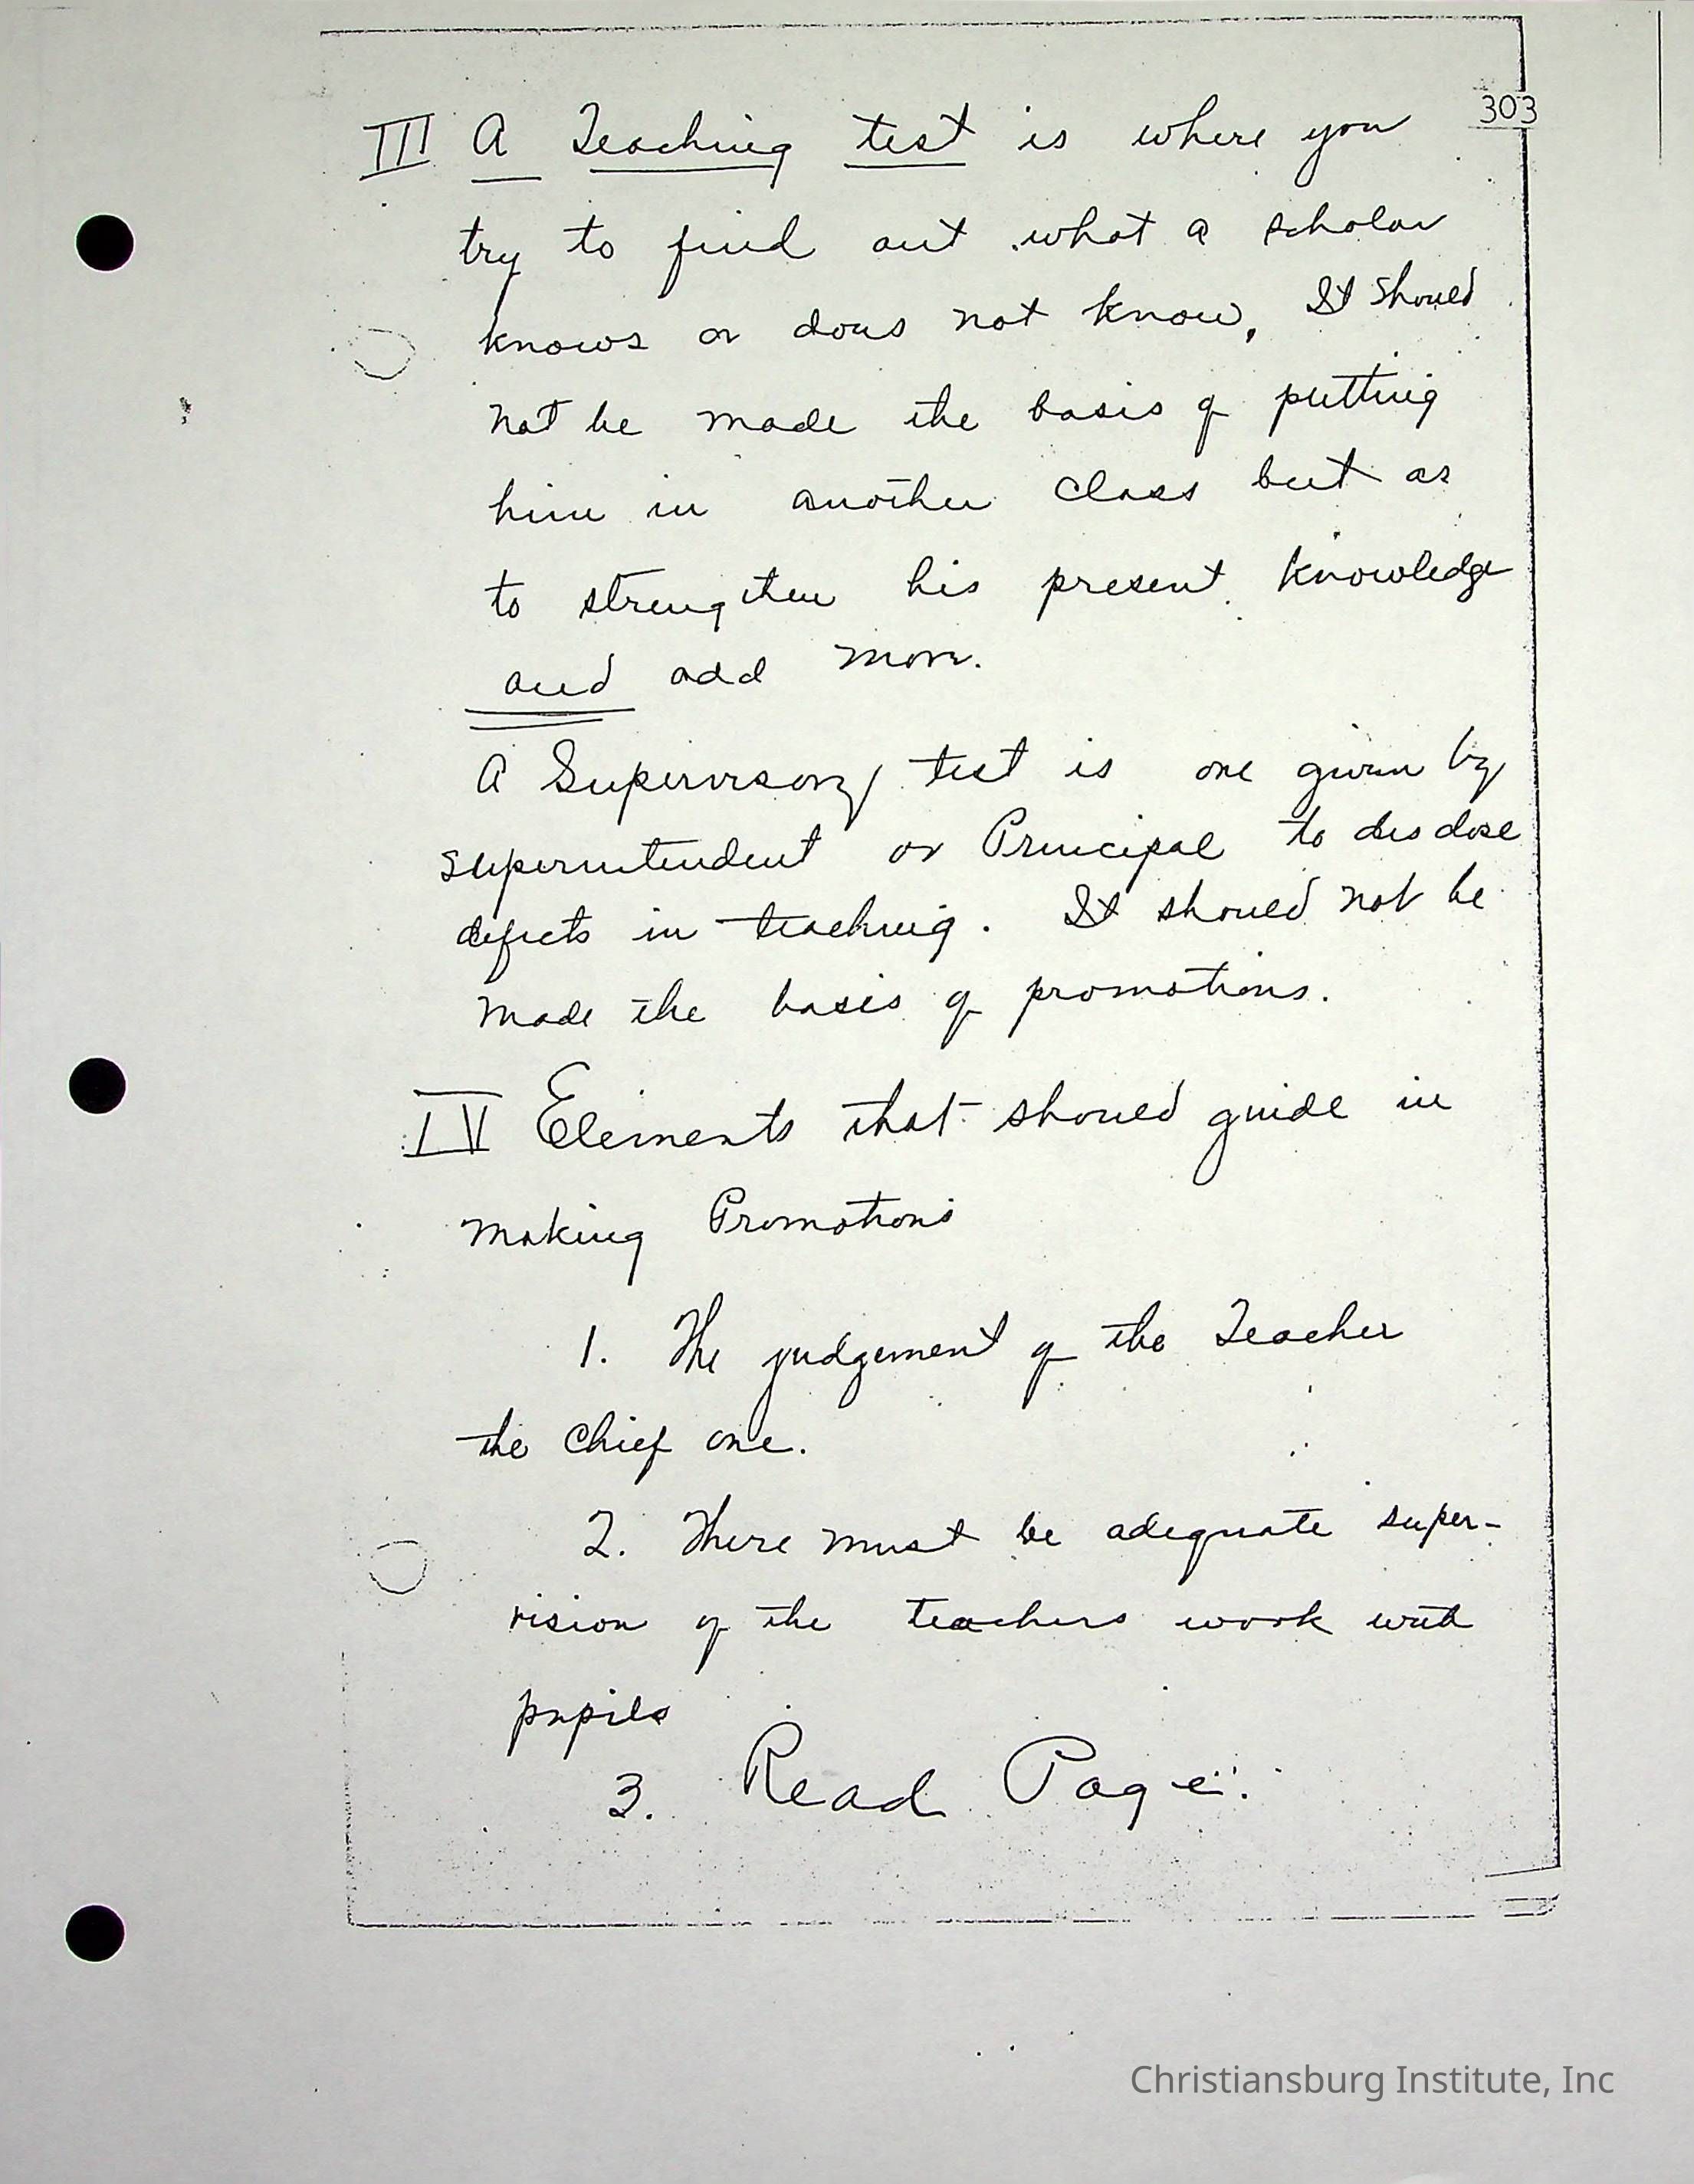 303
III A Teaching test is where you
try to find out what a scholar
knows or does not know, It should
not be made the basis of putting
him in another class but as
to strengthen his present knowledge
and add more.
A Supervisory test is one given by
superintendent or Principal to disclose
defects in teaching. It should not be
made the basis of promotions.
IV Elements that should guide in
making Promotions
1. The judgement of the Teacher
the chief one.
2. There must be adequate super-
vision of the teachers work with
pupils
3. Read Page.
Christiansburg Institute, Inc